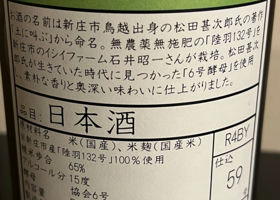 お酒の名前は新庄市鳥越出身の松田甚次郎氏の著作
土に叫ぶ」から命名。無農薬無施肥の「陸羽132号」を
新庄市のイシイファーム石井昭一さんが栽培。松田甚次
郎氏が生きていた時代に見つかった「6号酵母」を使用
、素朴な香りと奥深い味わいに仕上がりました。
品目：日本酒
原材料名 米(国産)、米麹(国産米)
新庄市産「陸羽132号」100%使用
精米歩合 65%
アルコール分 15度
協会6号
R4BY
仕込
59